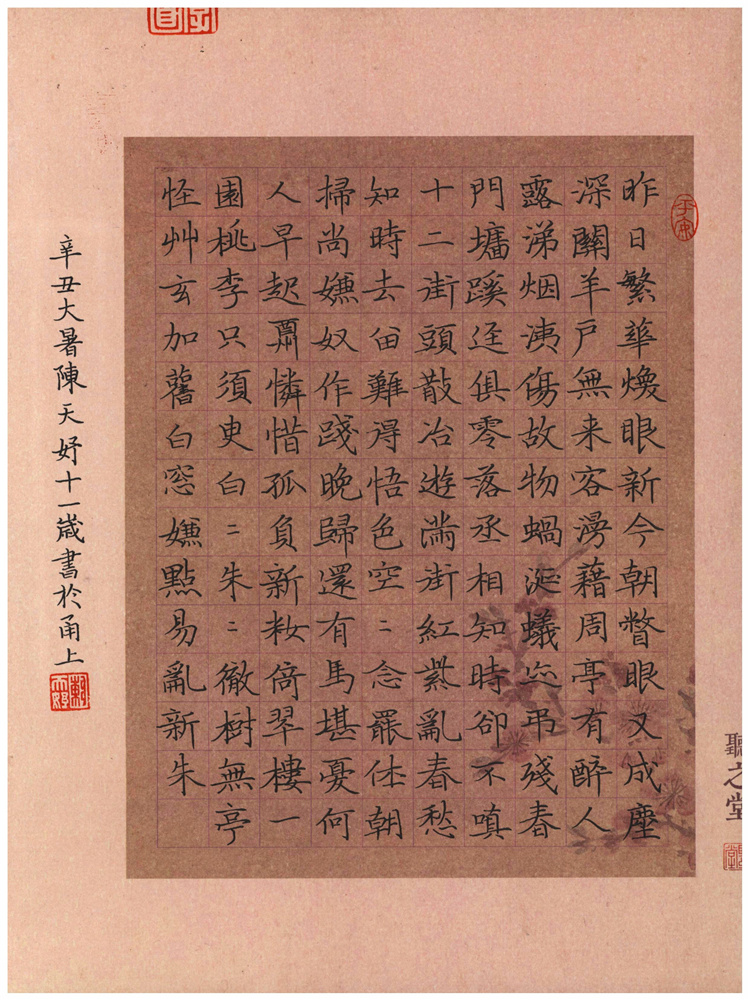 昨日繁華煥眼新今朝瞥眼又成塵
深關羊戶無来容漫藉周亭有醉人
露涕烟洟傷故物蝸涎蟻迹弔殘春
門墻蹊逕俱零落丞相知時卻不嗔
十二街頭散冶遊滿街紅紫亂春愁
知時去留難得悟色空二念罷休朝
掃尚嫌奴作踐晚歸還有馬堪憂何
人早起憐惜孤負新妝倚翠樓一
園桃李只須臾白二朱二徹樹無亭
怪艸玄加舊白窓嫌點易亂新朱
辛丑大暑陳天妤十一歲書於甬上
平安
聽之堂